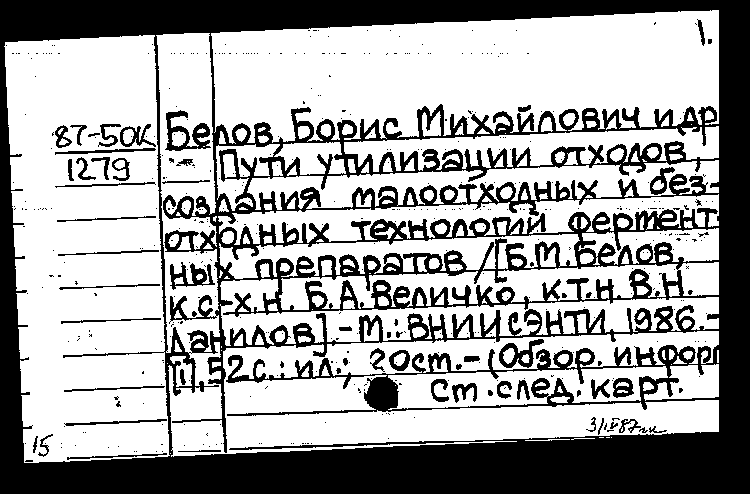 1.
87-50К Белов, Борис Михайлович и др
1279 Пути утилизации отходов,
создания малоотходных и без-
отходных технологий фермент-
ных препаратов /[Б.М.Белов,
к.с.-х.н. Б.А.Величко, к.т.н. В.Н.
Данилов].-М.: ВНИИСЭНТИ, 1986.-
[1], 52с.: ил.; 20см.-(Обзор. информ
См.след.карт.
15